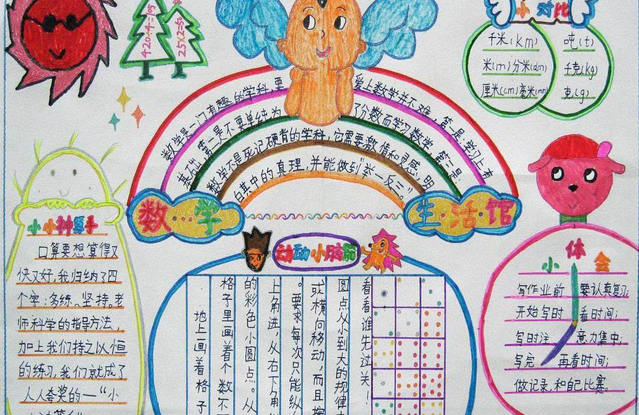 420÷4=105
25×2=50
小对比
千米(km)
米(m)分米(dm)
厘米(cm)毫米(mm)
吨(t)
千克(kg)
克(g)
数学是一门有趣的学科,要爱上数学并不难,第一是学习上有
基础,第二是不要单纯为了分数而学习数学,第三是
数学不是死记硬背的学科,它需要激情和灵感,明
白其中的真理,并能做到“举一反三”。
数…学
生·活·馆
小小神算手
口算要想算得又
快又好,我归纳了四
个字:多练、坚持,老
师科学的指导方法,
加上我们持之以恒
的练习,我们就成了
人人夸奖的—“小
动动小脑筋
看看谁先过关!
圆点从小到大的规律
或横向移动,而且按
。要求每次只能纵
上角进,从右下角
的彩色小圆点。从
格子里画着个数不
地上画着格子
小体会
写作业前 要认真复习;
开始写时 看时间;
写时注意力集中;
写完 再看时间;
做记录,和自己比赛。